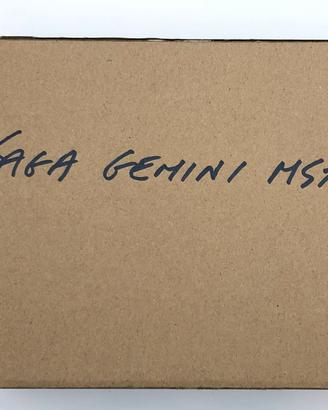 SAGA GEMINI MS